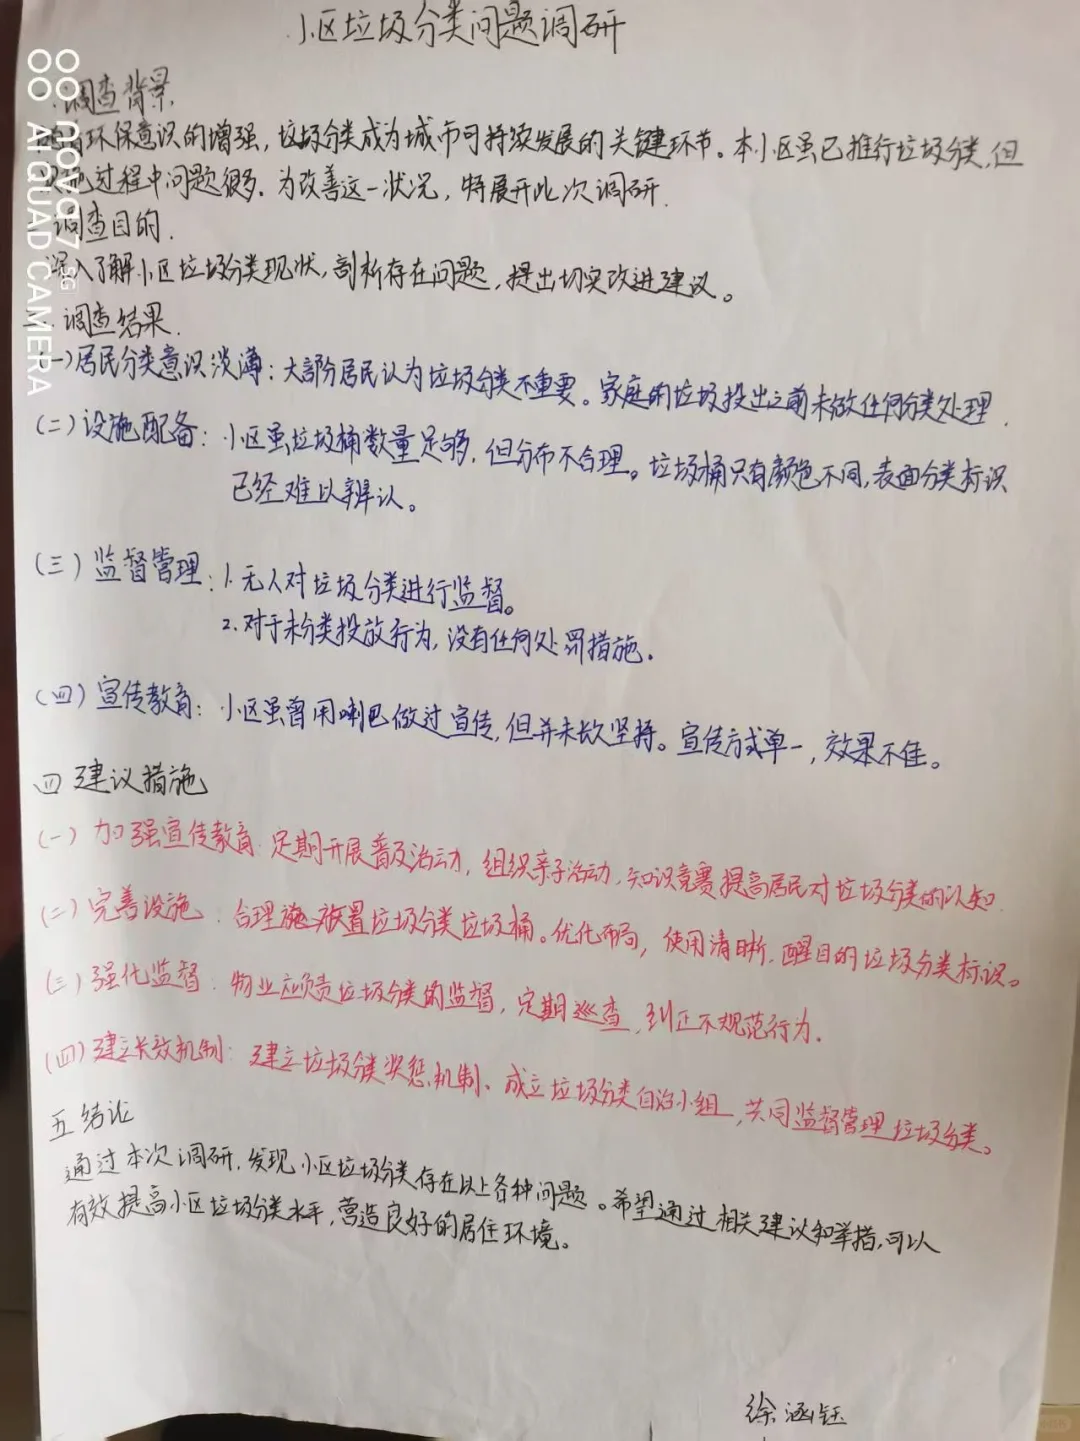 小区垃圾分类问题调研
调查背景
着环保意识的增强，垃圾分类成为城市可持续发展的关键环节。本小区虽已推行垃圾分类，但
实施过程中问题很多，为改善这一状况，特展开此次调研.
调查目的.
深入了解小区垃圾分类现状，剖析存在问题，提出切实改进建议。
调查结果.
(一)居民分类意识淡薄：大部分居民认为垃圾分类不重要。家庭的垃圾投出之前未做任何分类处理.
(二)设施配备：小区虽垃圾桶数量足够，但分布不合理。垃圾桶只有颜色不同，表面分类标识
已经难以辨认。
(三)监督管理：1.无人对垃圾分类进行监督。
2.对于未分类投放行为，没有任何处罚措施.
(四)宣传教育：小区虽曾用喇叭做过宣传，但并未长久坚持。宣传方式单一，效果不佳。
四 建议措施
(一)加强宣传教育：定期开展普及活动，组织亲子活动，知识竞赛提高居民对垃圾分类的认知.
(二)完善设施：合理放置垃圾分类垃圾桶。优化布局，使用清晰，醒目的垃圾分类标识。
(三)强化监督：物业应负责垃圾分类的监督，定期巡查，纠正不规范行为.
(四)建立长效机制：建立垃圾分类奖惩机制、成立垃圾分类自治小组，共同监督管理垃圾分类。
五 结论
通过本次调研，发现小区垃圾分类存在以上各种问题。希望通过相关建议和举措，可以
有效提高小区垃圾分类水平，营造良好的居住环境。
徐涵钰
nova7 5G
AI QUAD CAMERA